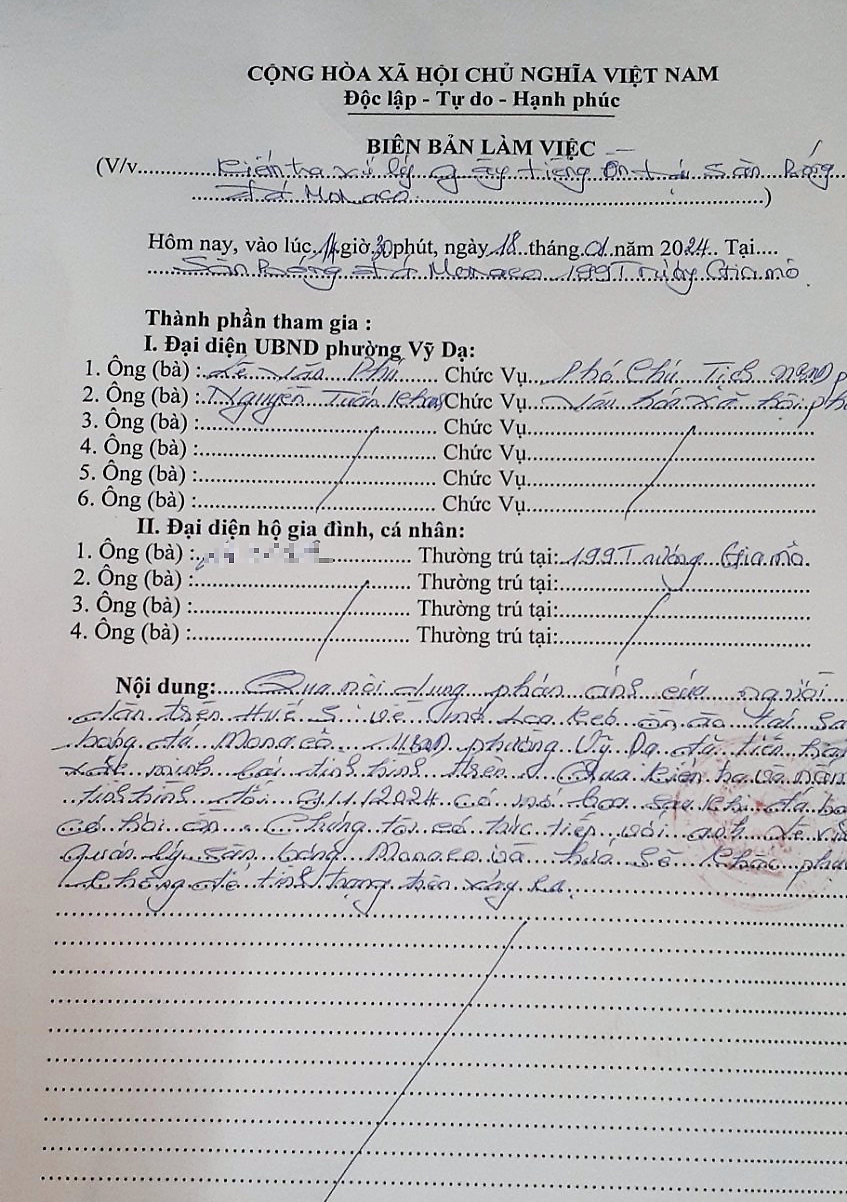 CỘNG HÒA XÃ HỘI CHỦ NGHĨA VIỆT NAM
Độc lập - Tự do - Hạnh phúc
BIÊN BẢN LÀM VIỆC
(V/v.......... Kiểm tra xử lý gây tiếng ồn tại Sân Bóng
đá Monaco ..........)
Hôm nay, vào lúc 14 giờ 30 phút, ngày 18 tháng 01 năm 2024.. Tại....
Sân Bóng đá Monaco 199 Trường Gia mô
Thành phần tham gia :
I. Đại diện UBND phường Vỹ Dạ:
1. Ông (bà) : Lê Văn Phú Chức Vụ Phó Chủ Tịch UBND p
2. Ông (bà) : Nguyễn Tuấn Chức Vụ Văn hóa xã hội ph
3. Ông (bà) : Chức Vụ
4. Ông (bà) : Chức Vụ
5. Ông (bà) : Chức Vụ
6. Ông (bà) : Chức Vụ
II. Đại diện hộ gia đình, cá nhân:
1. Ông (bà) : Thường trú tại: 199 Trường Gia mô
2. Ông (bà) : Thường trú tại:
3. Ông (bà) : Thường trú tại:
4. Ông (bà) : Thường trú tại:
Nội dung: Qua nội dung phản ánh của người
dân trên Huế S về mở loa kéo ồn ào tại sâ
bóng đá Monaco. UBND phường Vỹ Dạ đã tiến hàn
xác minh lại tình hình trên. Qua kiểm tra và nắm
tình hình tối /1/2024 có mở loa sau khi đá bó
có hơi ồn. Chúng tôi có trực tiếp với anh
quản lý sân bóng Monaco và hứa sẽ khắc phụ
không để tình trạng trên xảy ra.